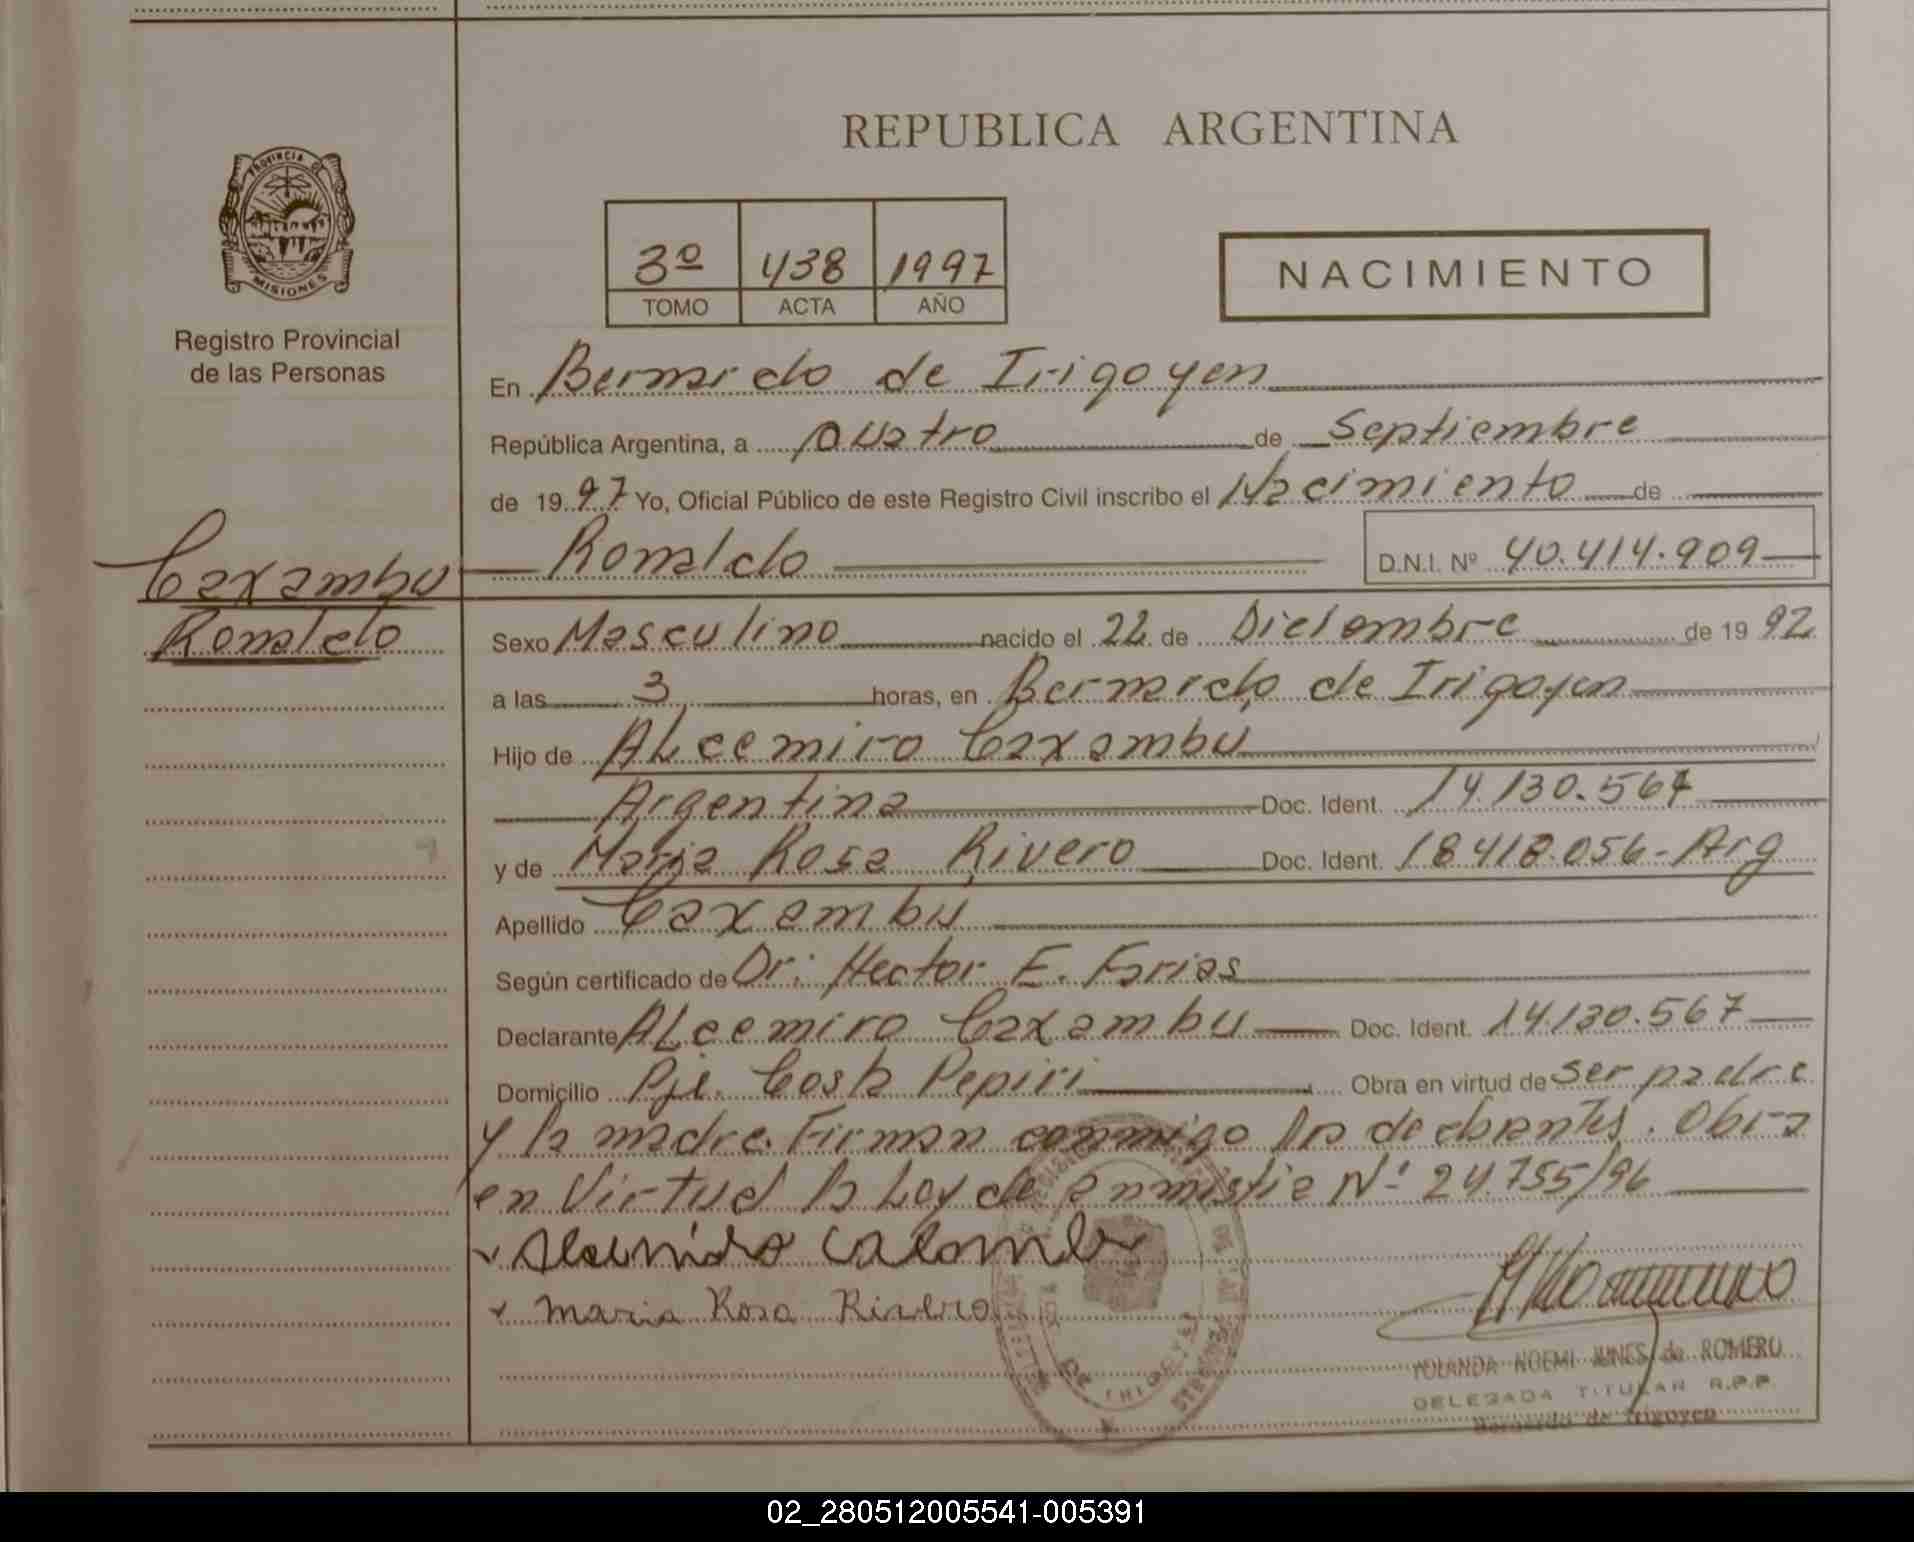 REPUBLICA ARGENTINA
PROVINCIA DE MISIONES
Registro Provincial
de las Personas
3º 438 1997
TOMO ACTA AÑO
NACIMIENTO
En Bernardo de Irigoyen
República Argentina, a cuatro de Septiembre
de 1997 Yo, Oficial Público de este Registro Civil inscribo el Nacimiento de
Caxambu
Ronaldo
Ronaldo D.N.I. Nº 40.414.909
Sexo Masculino nacido el 22 de Diciembre de 1992
a las 3 horas, en Bernardo de Irigoyen
Hijo de ALcemiro Caxambu
Argentina Doc. Ident. 14.130.567
y de Maria Rosa Rivero Doc. Ident. 18418.056-Arg
Apellido Caxambu
Según certificado de Dr: Hector E. Farias
Declarante ALcemiro Caxambu Doc. Ident. 14.130.567
Domicilio Pje. Costa Pepiri Obra en virtud de ser padre
y la madre. Firman conmigo los declarantes. Obra
en Virtud la Ley de anmistia Nº 24.755/96
Maria Rosa Rivero
YOLANDA NOEMI de ROMERO
DELEGADA TITULAR R.P.P.
Bernardo de Irigoyen
02_280512005541-005391